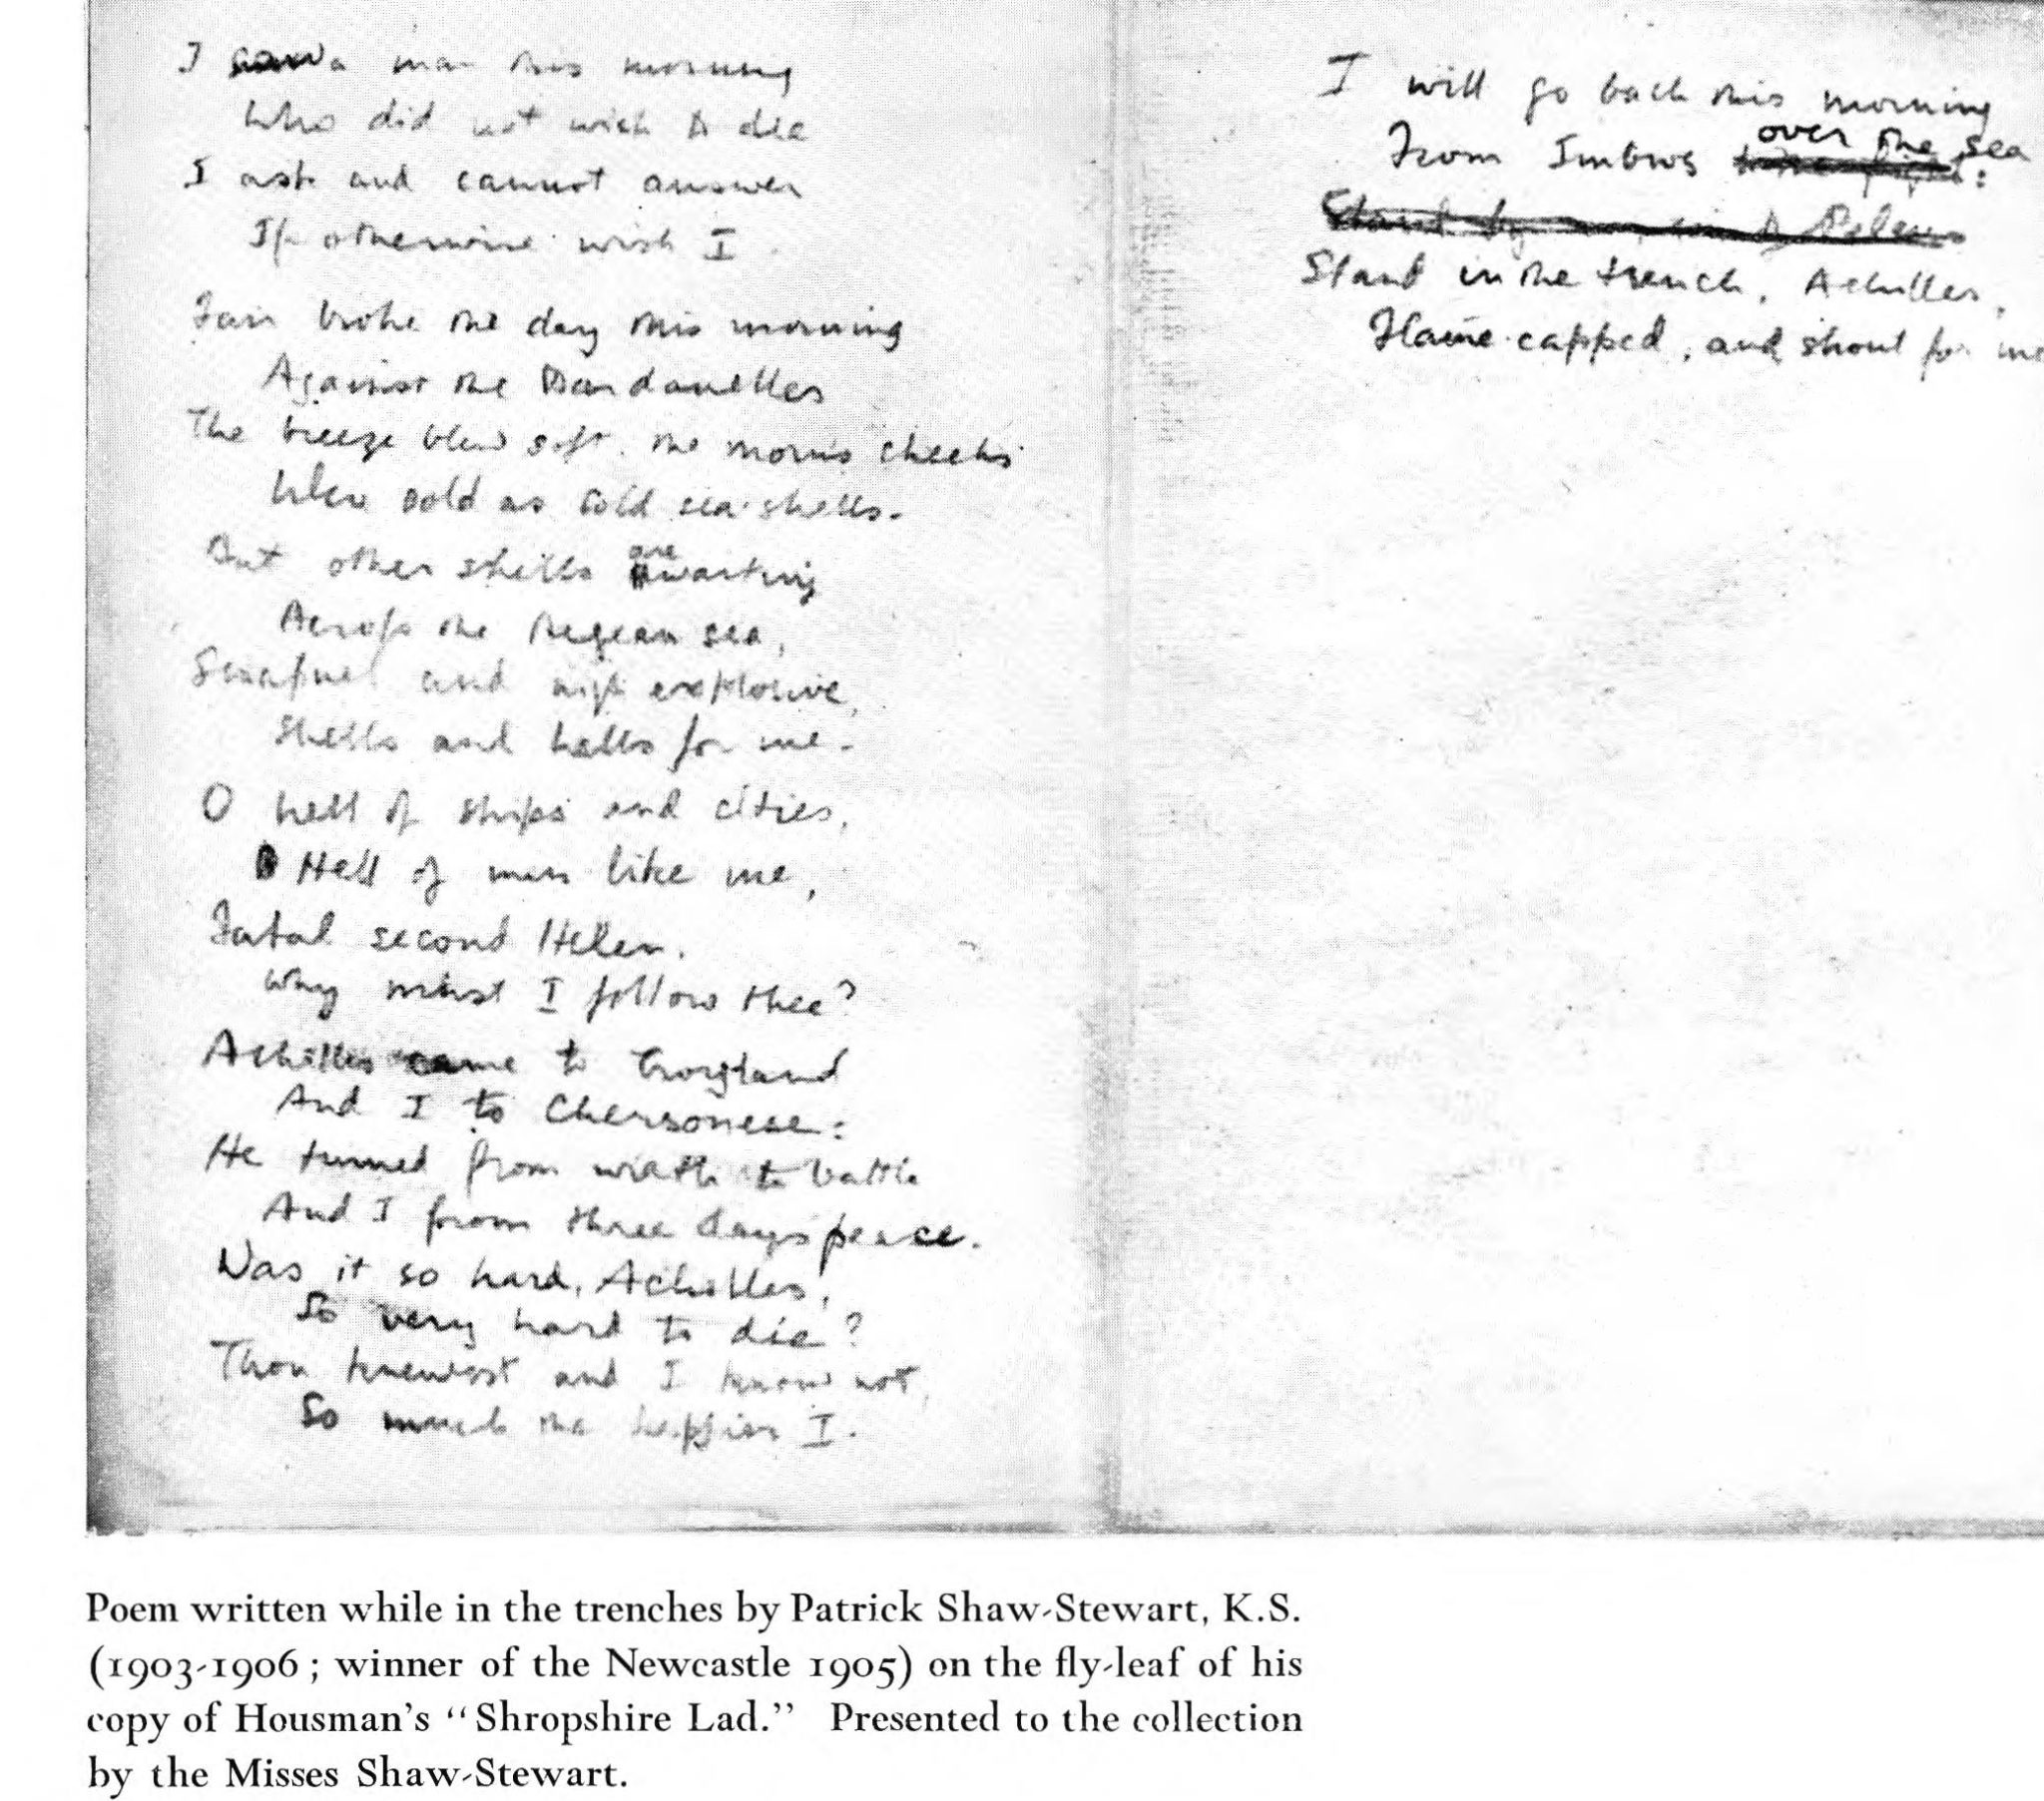 I saw a man this morning
Who did not wish to die
I ask and cannot answer
If otherwise wish I
Fair broke the day this morning
Against the Dardanelles
The breeze blew soft, the morn's cheeks
Were cold as cold sea-shells.
But other shells are waiting
Across the Aegean sea,
Shrapnel and high explosive,
Shells and hells for me.
O hell of ships and cities,
Hell of men like me,
Fatal second Helen,
Why must I follow thee?
Achilles came to Troyland
And I to Chersonese:
He turned from wrath to battle
And I from three days peace.
Was it so hard, Achilles,
So very hard to die?
Thou knewest and I know not,
So much the happier I.
I will go back this morning
From Imbros over the sea
Stand in the trench, Achilles,
Flame-capped, and shout for me
Poem written while in the trenches by Patrick Shaw-Stewart, K.S.
(1903-1906; winner of the Newcastle 1905) on the fly-leaf of his
copy of Housman's "Shropshire Lad." Presented to the collection
by the Misses Shaw-Stewart.